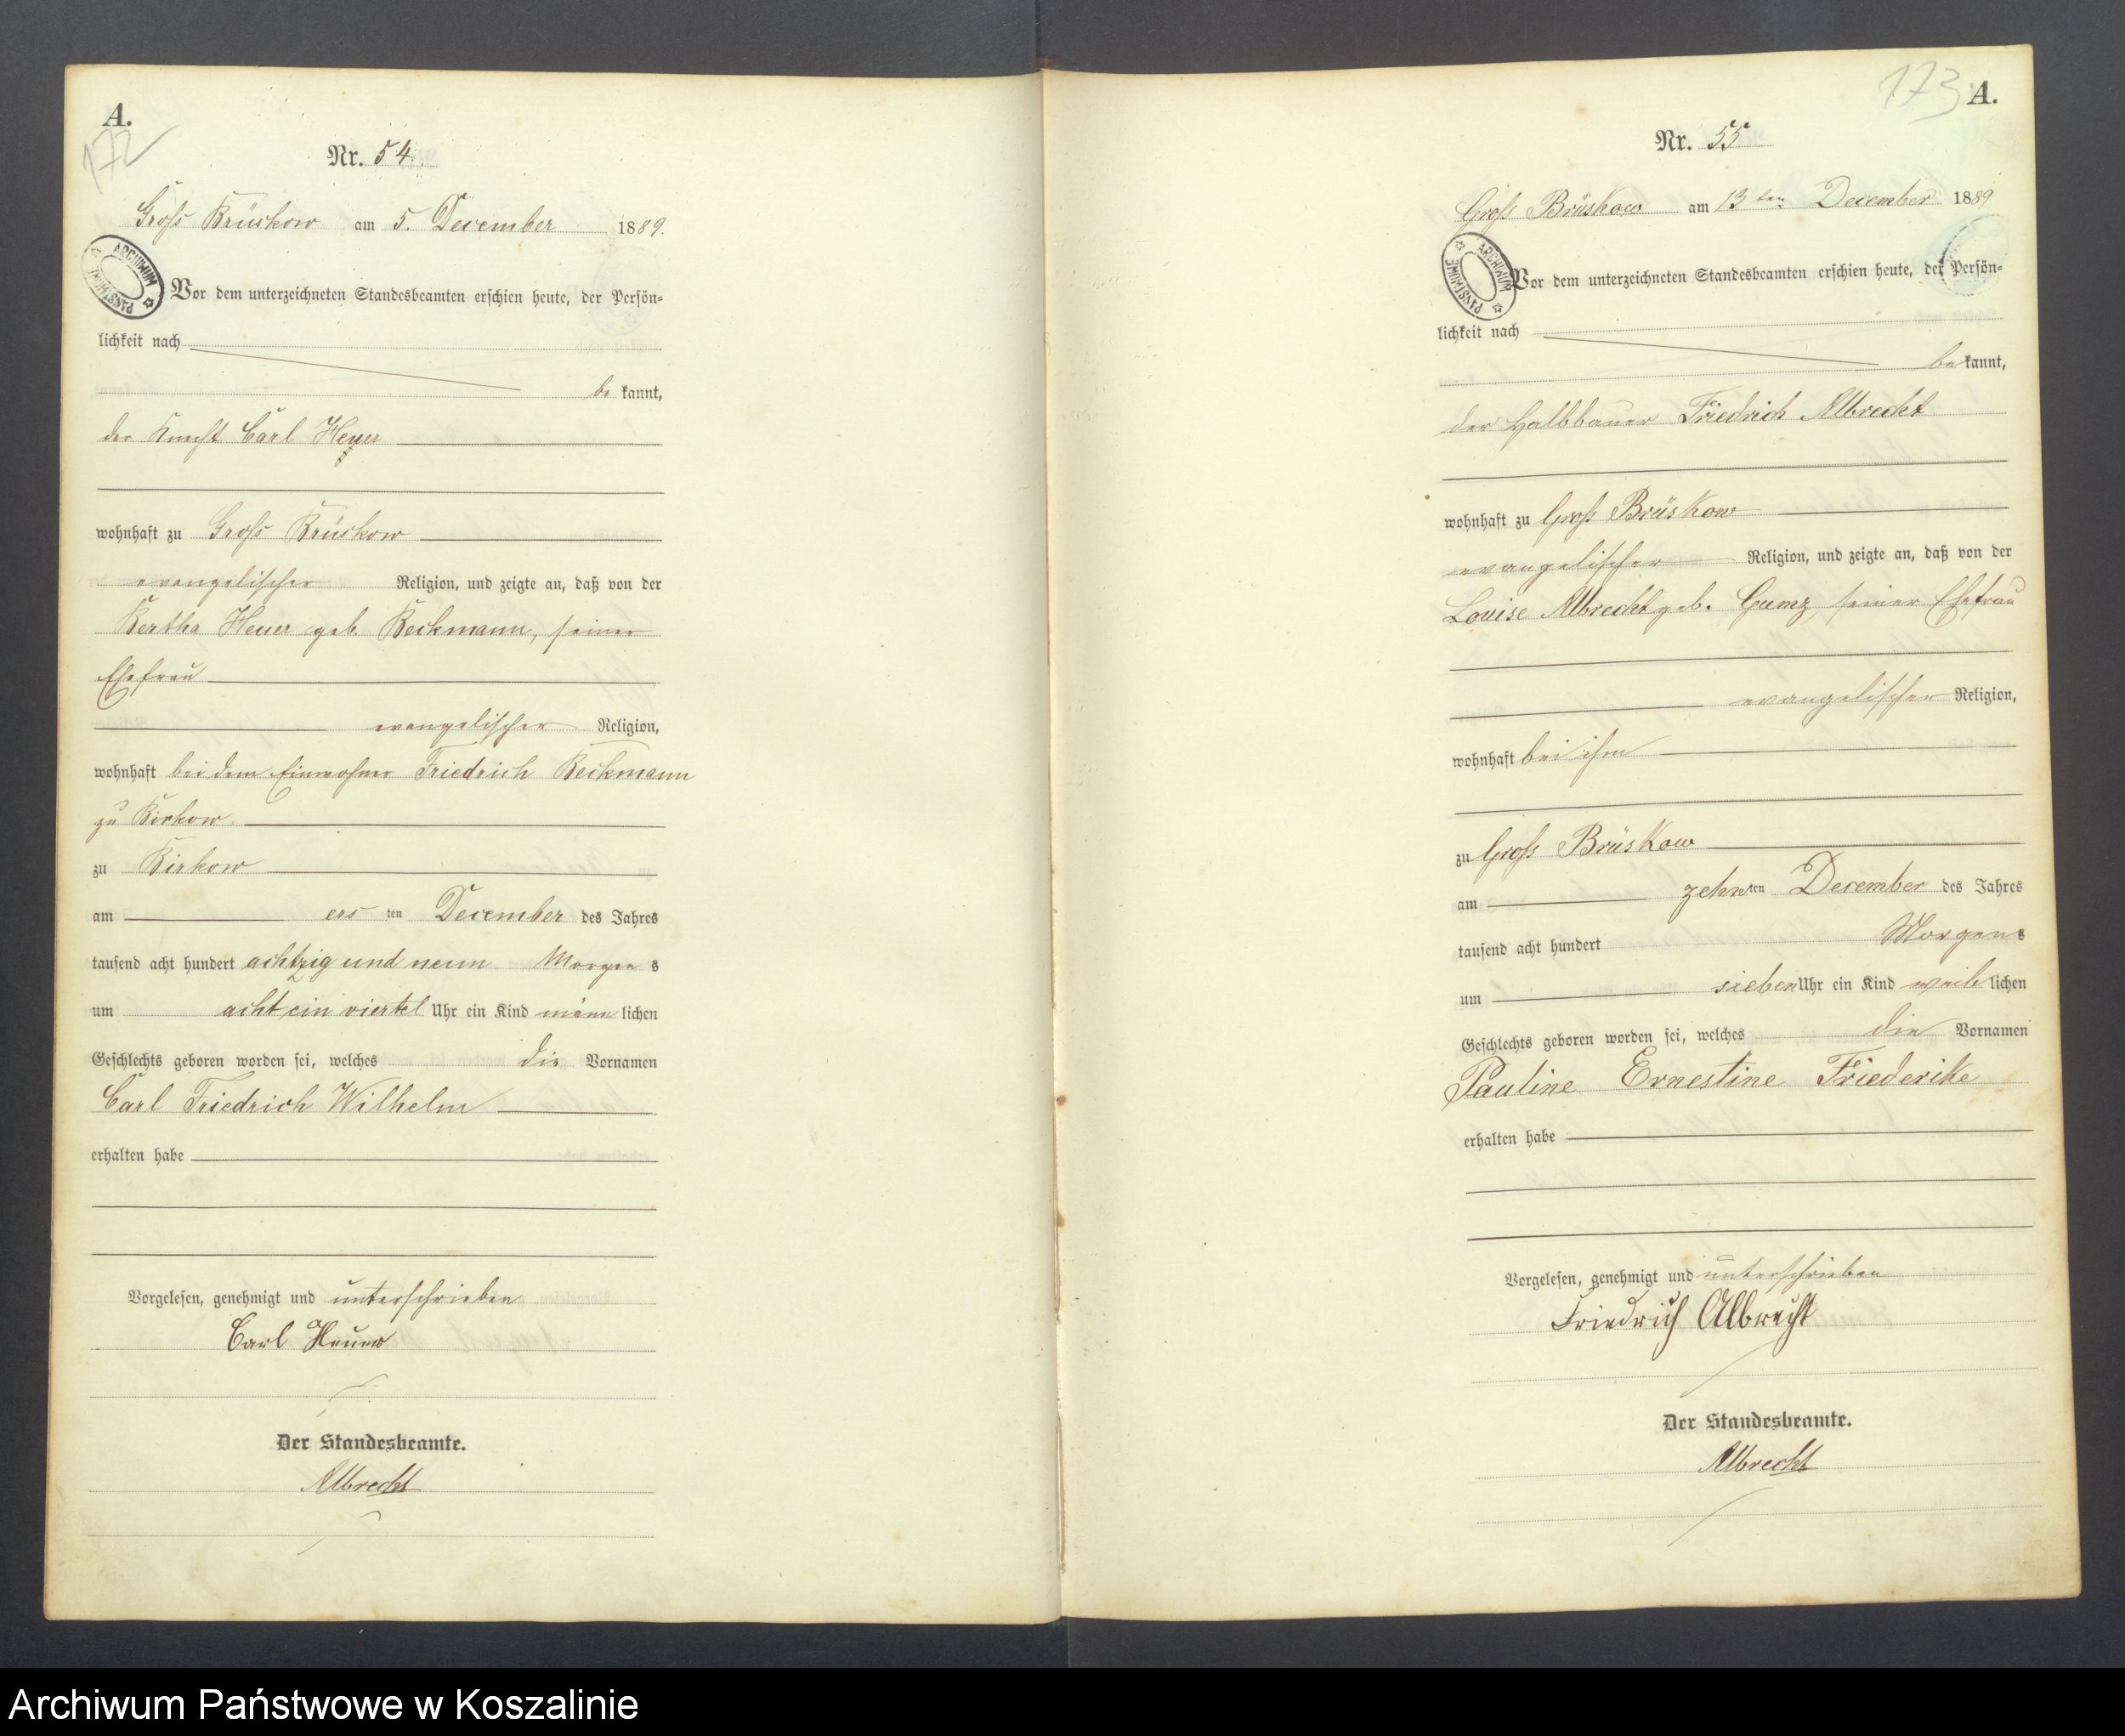 A.
172
Nr. 54.
Gross Brüskow am 5. December 1889.
ARCHIWUM PAŃSTWOWE
Vor dem unterzeichneten Standesbeamten erschien heute, der Persön-
lichkeit nach
be kannt,
der Knecht Carl Heuer
wohnhaft zu Gross Brüskow
evangelischer Religion, und zeigte an, daß von der
Bertha Heuer geb. Beckmann, seiner
Ehefrau
evangelischer Religion,
wohnhaft bei dem Einwohner Friedrich Beckmann
zu Birkow
zu Birkow
am ers ten December des Jahres
tausend acht hundert achtzig und neun Morgen s
um acht ein viertel Uhr ein Kind männ lichen
Geschlechts geboren worden sei, welches die Vornamen
Carl Friedrich Wilhelm
erhalten habe
Vorgelesen, genehmigt und unterschrieben
Carl Heuer
Der Standesbeamte.
Albrecht
173
A.
Nr. 55
Gross Brüskow am 13ten December 1889
ARCHIWUM PAŃSTWOWE
Vor dem unterzeichneten Standesbeamten erschien heute, der Persön-
lichkeit nach
be kannt,
der Halbbauer Friedrich Albrecht
wohnhaft zu Gross Brüskow
evangelischer Religion, und zeigte an, daß von der
Louise Albrecht geb. Gumz, seiner Ehefrau
evangelischer Religion,
wohnhaft bei ihm
zu Gross Brüskow
am zehn ten December des Jahres
tausend acht hundert Morgen s
um sieben Uhr ein Kind weib lichen
Geschlechts geboren worden sei, welches die Vornamen
Pauline Ernestine Friederike
erhalten habe
Vorgelesen, genehmigt und unterschrieben
Friedrich Albrecht
Der Standesbeamte.
Albrecht
Archiwum Państwowe w Koszalinie